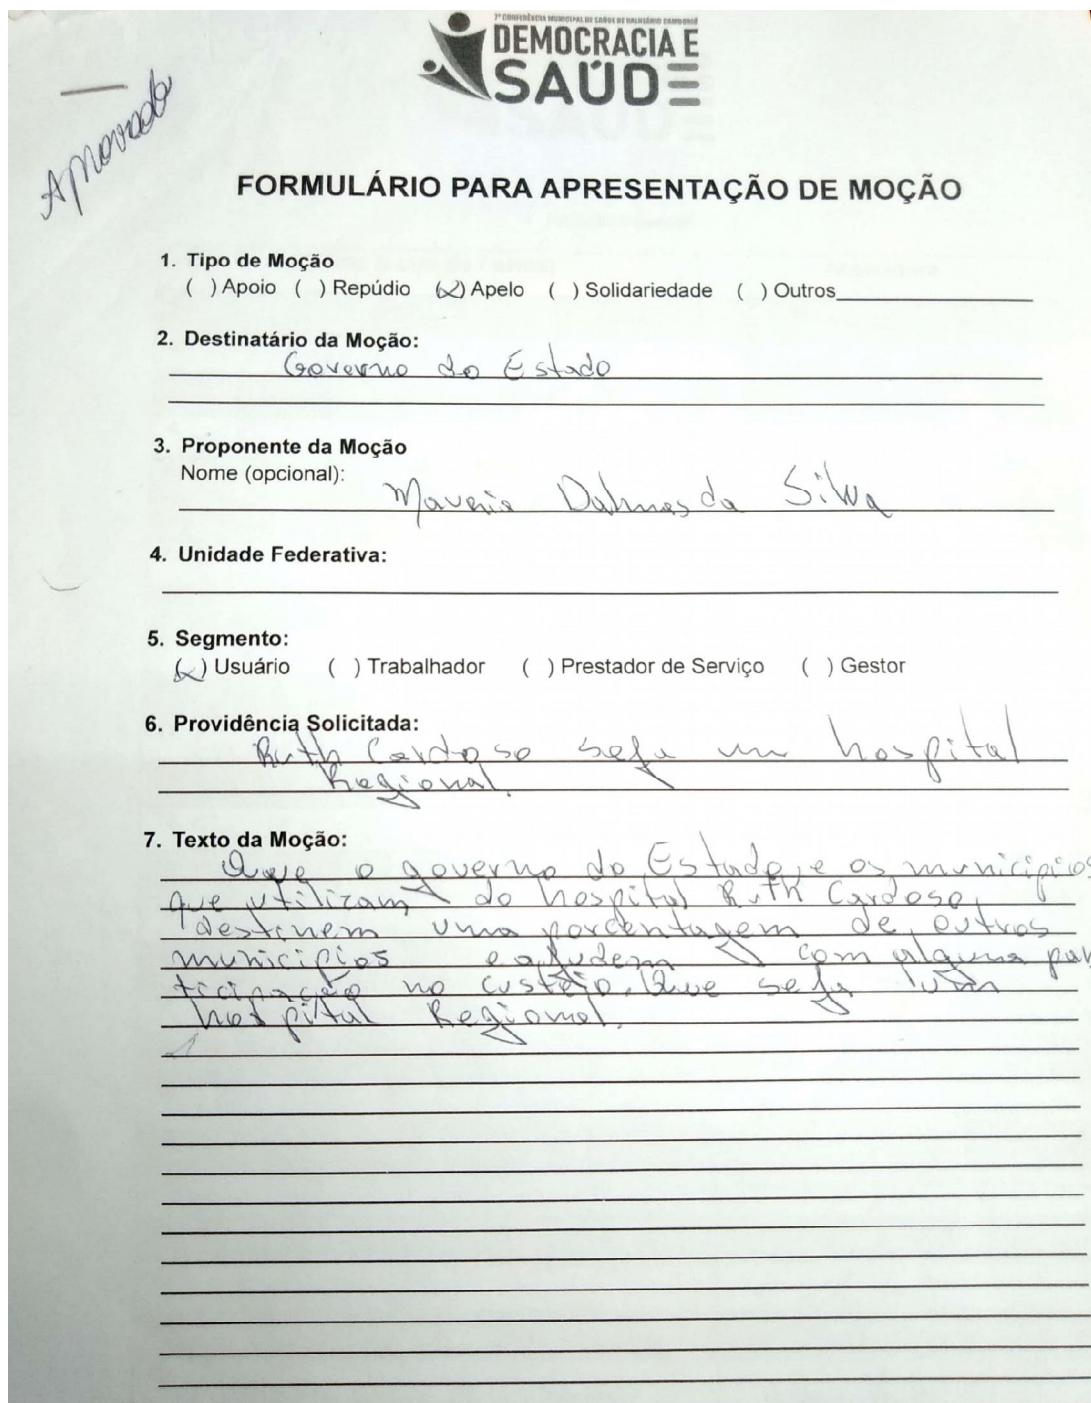 7ª CONFERÊNCIA MUNICIPAL DE SAÚDE DE BALNEÁRIO CAMBORIÚ
DEMOCRACIA E
SAÚDE
Aprovada
FORMULÁRIO PARA APRESENTAÇÃO DE MOÇÃO
1. Tipo de Moção
( ) Apoio ( ) Repúdio (x) Apelo ( ) Solidariedade ( ) Outros
2. Destinatário da Moção:
Governo do Estado
3. Proponente da Moção
Nome (opcional):
da Silva
4. Unidade Federativa:
5. Segmento:
(x) Usuário ( ) Trabalhador ( ) Prestador de Serviço ( ) Gestor
6. Providência Solicitada:
Ruth Cardoso seja um hospital
Regional.
7. Texto da Moção:
Que o governo do Estado, e os municípios
que utilizam do hospital Ruth Cardoso,
destinem uma porcentagem de outros
municípios e ajudem com alguma par
ticipação no custeio. Que seja um
hospital Regional.